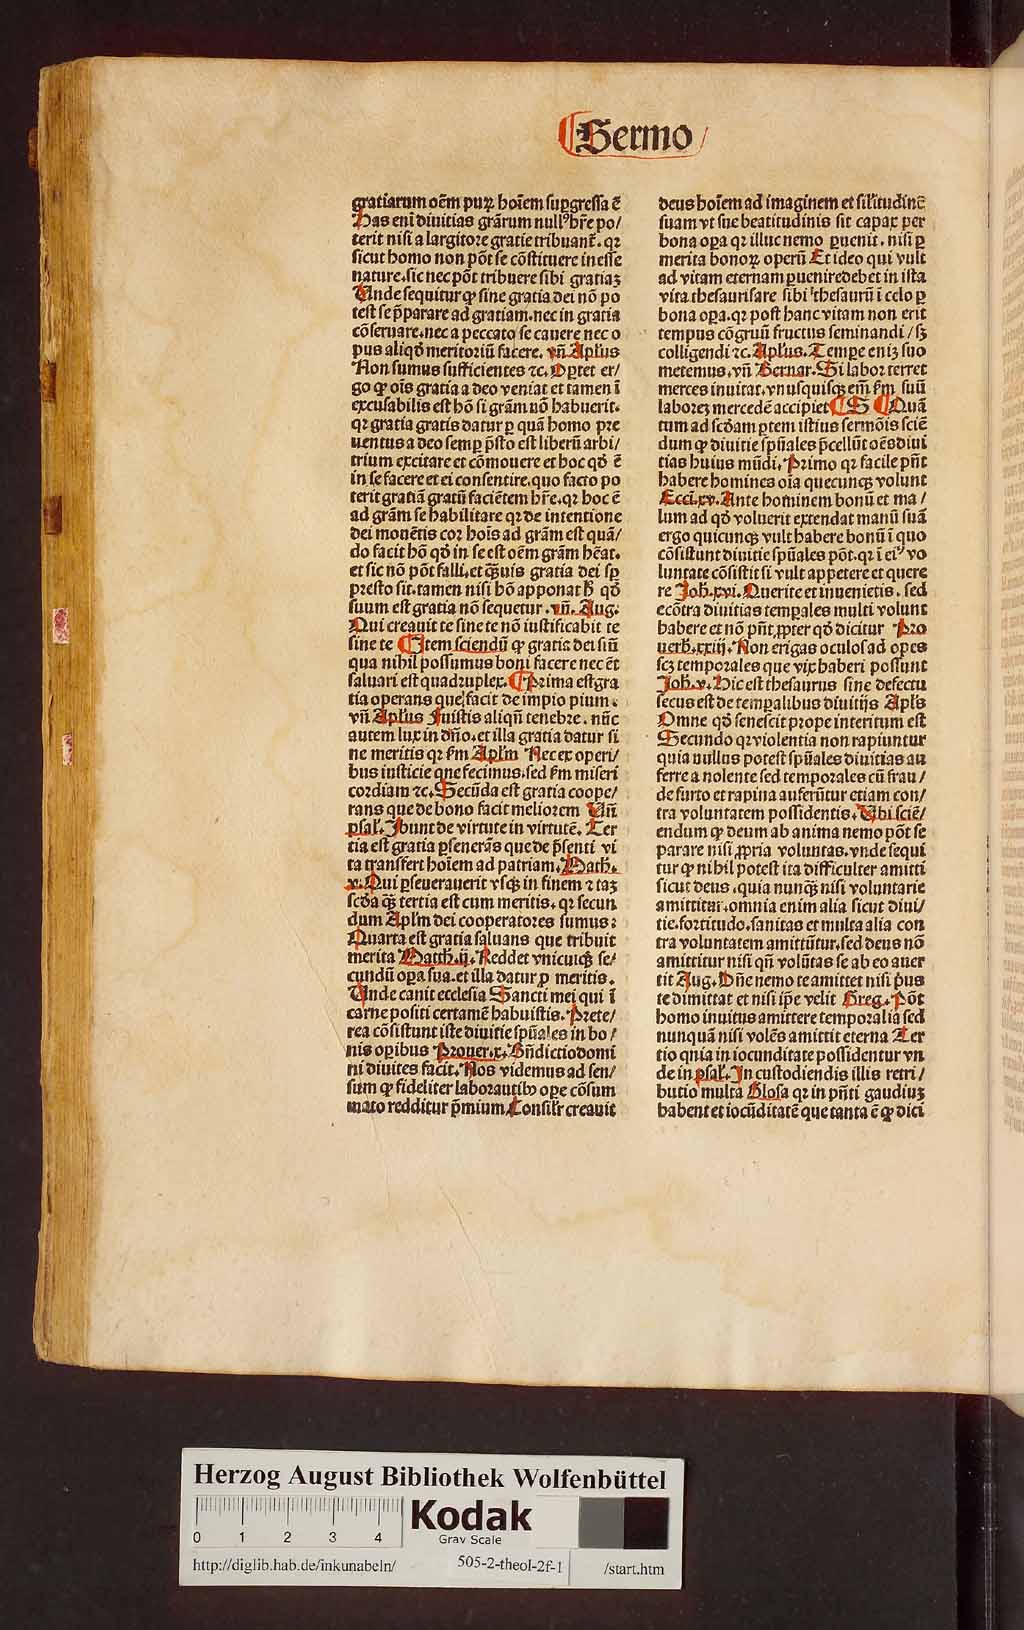 Sermo
gratiarum oēm puꝝ hoīem suꝑgressa ē
Has eni diuitias grārum nullꝰ hr̄e po/
terit nisi a largitore gratie tribuant̄. qꝛ
sicut homo non pōt se cōstituere in esse
nature. sic nec pōt tribuere sibi gratiaꝫ
Unde sequitur ꝙ sine gratia dei nō po
test se p̄parare ad gratiam. nec in gratia
cōseruare. nec a peccato se cauere nec o
pus aliqḋ meritoriū facere. vn̄ Apl̄us
Non sumus sufficientes ⁊c. Oꝑtet er/
go ꝙ oīs gratia a deo veniat et tamen ī
excusabilis est hō si grām nō habuerit.
qꝛ gratia gratis datur ꝑ quā homo pre
uentus a deo semꝑ p̄sto est liberū arbi/
trium excitare et cōmouere et hoc qḋ ē
in se facere et ei consentire. quo facto po
terit gratiā gratū faciētem hr̄e. qꝛ hoc ē
ad grām se habilitare qꝛ de intentione
dei monētis cor hoīs ad grām est quā/
do facit hō qḋ in se est oēm grām hēat.
et sic nō pōt falli. et qᷓuis gratia dei sꝑ
presto sit. tamen nisi hō apponat hͦ qḋ
suum est gratia nō sequetur. vn̄. Aug.
Qui creauit te sine te nō iustificabit te
sine te ¶ Item sciendū ꝙ gratia dei siū
qua nihil possumus boni facere nec ēt
saluari est quadruplex. ¶ Prima est gra
tia operans que facit de impio pium.
vn̄ Apl̄us Fuistis aliqn̄ tenebre. nūc
autem lux in dn̄o. et illa gratia datur si
ne meritis qꝛ ẜm Apl̄m Nec ex operi/
bus iusticie que fecimus. sed ẜm miseri
cordiam ⁊c. Secūda est gratia coope/
rans que de bono facit meliorem Un̄
psal̄. Ibunt de virtute in virtutē. Ter
tia est gratia ꝑseuerās que de p̄senti vi
ta transfert hoīem ad patriam. Math.
x. Qui ꝑseuerauerit vsqꝫ in finem ⁊ taꝫ
scḋa qᷓꝫ tertia est cum meritis. qꝛ secun
dum Apl̄m dei cooperatores sumus:
Quarta est gratia saluans que tribuit
merita Matth. ij. Reddet vnicuiqꝫ se/
cundū oꝑa sua. et illa datur ꝓ meritis.
Unde canit ecclesia Sancti mei qui ī
carne positi certamē habuistis. Prete/
rea cōsistunt iste diuitie spūales in bo/
nis oꝑibus Prouer. x. Bn̄dictio domi
ni diuites facit. Nos videmus ad sen/
sum ꝙ fideliter laborantibꝫ oꝑe cōsum
mato redditur p̄mium. Consil̄r creauit
deus hoīem ad imaginem et sil̄itudinē
suam vt sue beatitudinis sit capax per
bona oꝑa qꝛ illuc nemo ꝑuenit. nisi ꝑ
merita bonoꝝ operū Et ideo qui vult
ad vitam eternam ꝑuenire debet in ista
vita thesaurisare sibi thesaurū ī celo ꝑ
bona oꝑa. qꝛ post hanc vitam non erit
tempus cōgruū fructus seminandi / sꝫ
colligendi ⁊c. Apl̄us. Tempe enīꝫ suo
metemus. vn̄ Bernar. Si labor terret
merces inuitat. vnusquisqꝫ em̄ ẜm suū
laboreꝫ mercedē accipiet ¶ S ¶ Quā
tum ad scḋam ꝑtem istius sermōis sciē
dum ꝙ diuitie spūales p̄cellūt oēs diui
tias huius mūdi. Primo qꝛ facile pn̄t
habere homines oīa quecunqꝫ volunt
Eccī. xv. Ante hominem bonū et ma/
lum ad qḋ voluerit extendat manū suā
ergo quicunqꝫ vult habere bonū ī quo
cōsistunt diuitie spūales pōt. qꝛ ī eiꝰ vo
luntate cōsistit si vult appetere et quere
re Joh̄. xvi. Querite et inuenietis. sed
ecōtra diuitias temꝑales multi volunt
habere et nō pn̄t ꝓpter qḋ dicitur Pro
uerb̄. xxiij. Non erigas oculos ad opes
scꝫ temporales que vix haberi possunt
Joh̄. v. Hic est thesaurus sine defectu
secus est de temꝑalibus diuitijs Apl̄s
Omne qḋ senescit prope interitum est
Secundo qꝛ violentia non rapiuntur
quia nullus potest spūales diuitias au
ferre a nolente sed temporales cū frau/
de furto et rapina auferūtur etiam con/
tra voluntatem possidentis. Ubi sciē/
endum ꝙ deum ab anima nemo pōt se
parare nisi ꝓpria voluntas. vnde sequi
tur ꝙ nihil potest ita difficulter amitti
sicut deus. quia nunqꝫ nisi voluntarie
amittitur. omnia enim alia sicut diui/
tie. fortitudo. sanitas et multa alia con
tra voluntatem amittūtur. sed deus nō
amittitur nisi qn̄ volūtas se ab eo auer
tit Aug. Dn̄e nemo te amittet nisi prius
te dimittat et nisi ip̄e velit Greg. Pōt
homo inuitus amittere temporalia sed
nunquā nisi volēs amittit eterna Ter
tio quia in iocunditate possidentur vn
de in psal̄. In custodiendis illis retri/
butio multa Glosa qꝛ in pn̄ti gaudiuꝫ
habent et iocūditatē que tanta ē ꝙ dici
Herzog August Bibliothek Wolfenbüttel
0 1 2 3 4
Kodak
Gray Scale
http://diglib.hab.de/inkunabeln/ 505-2-theol-2f-1 /start.htm